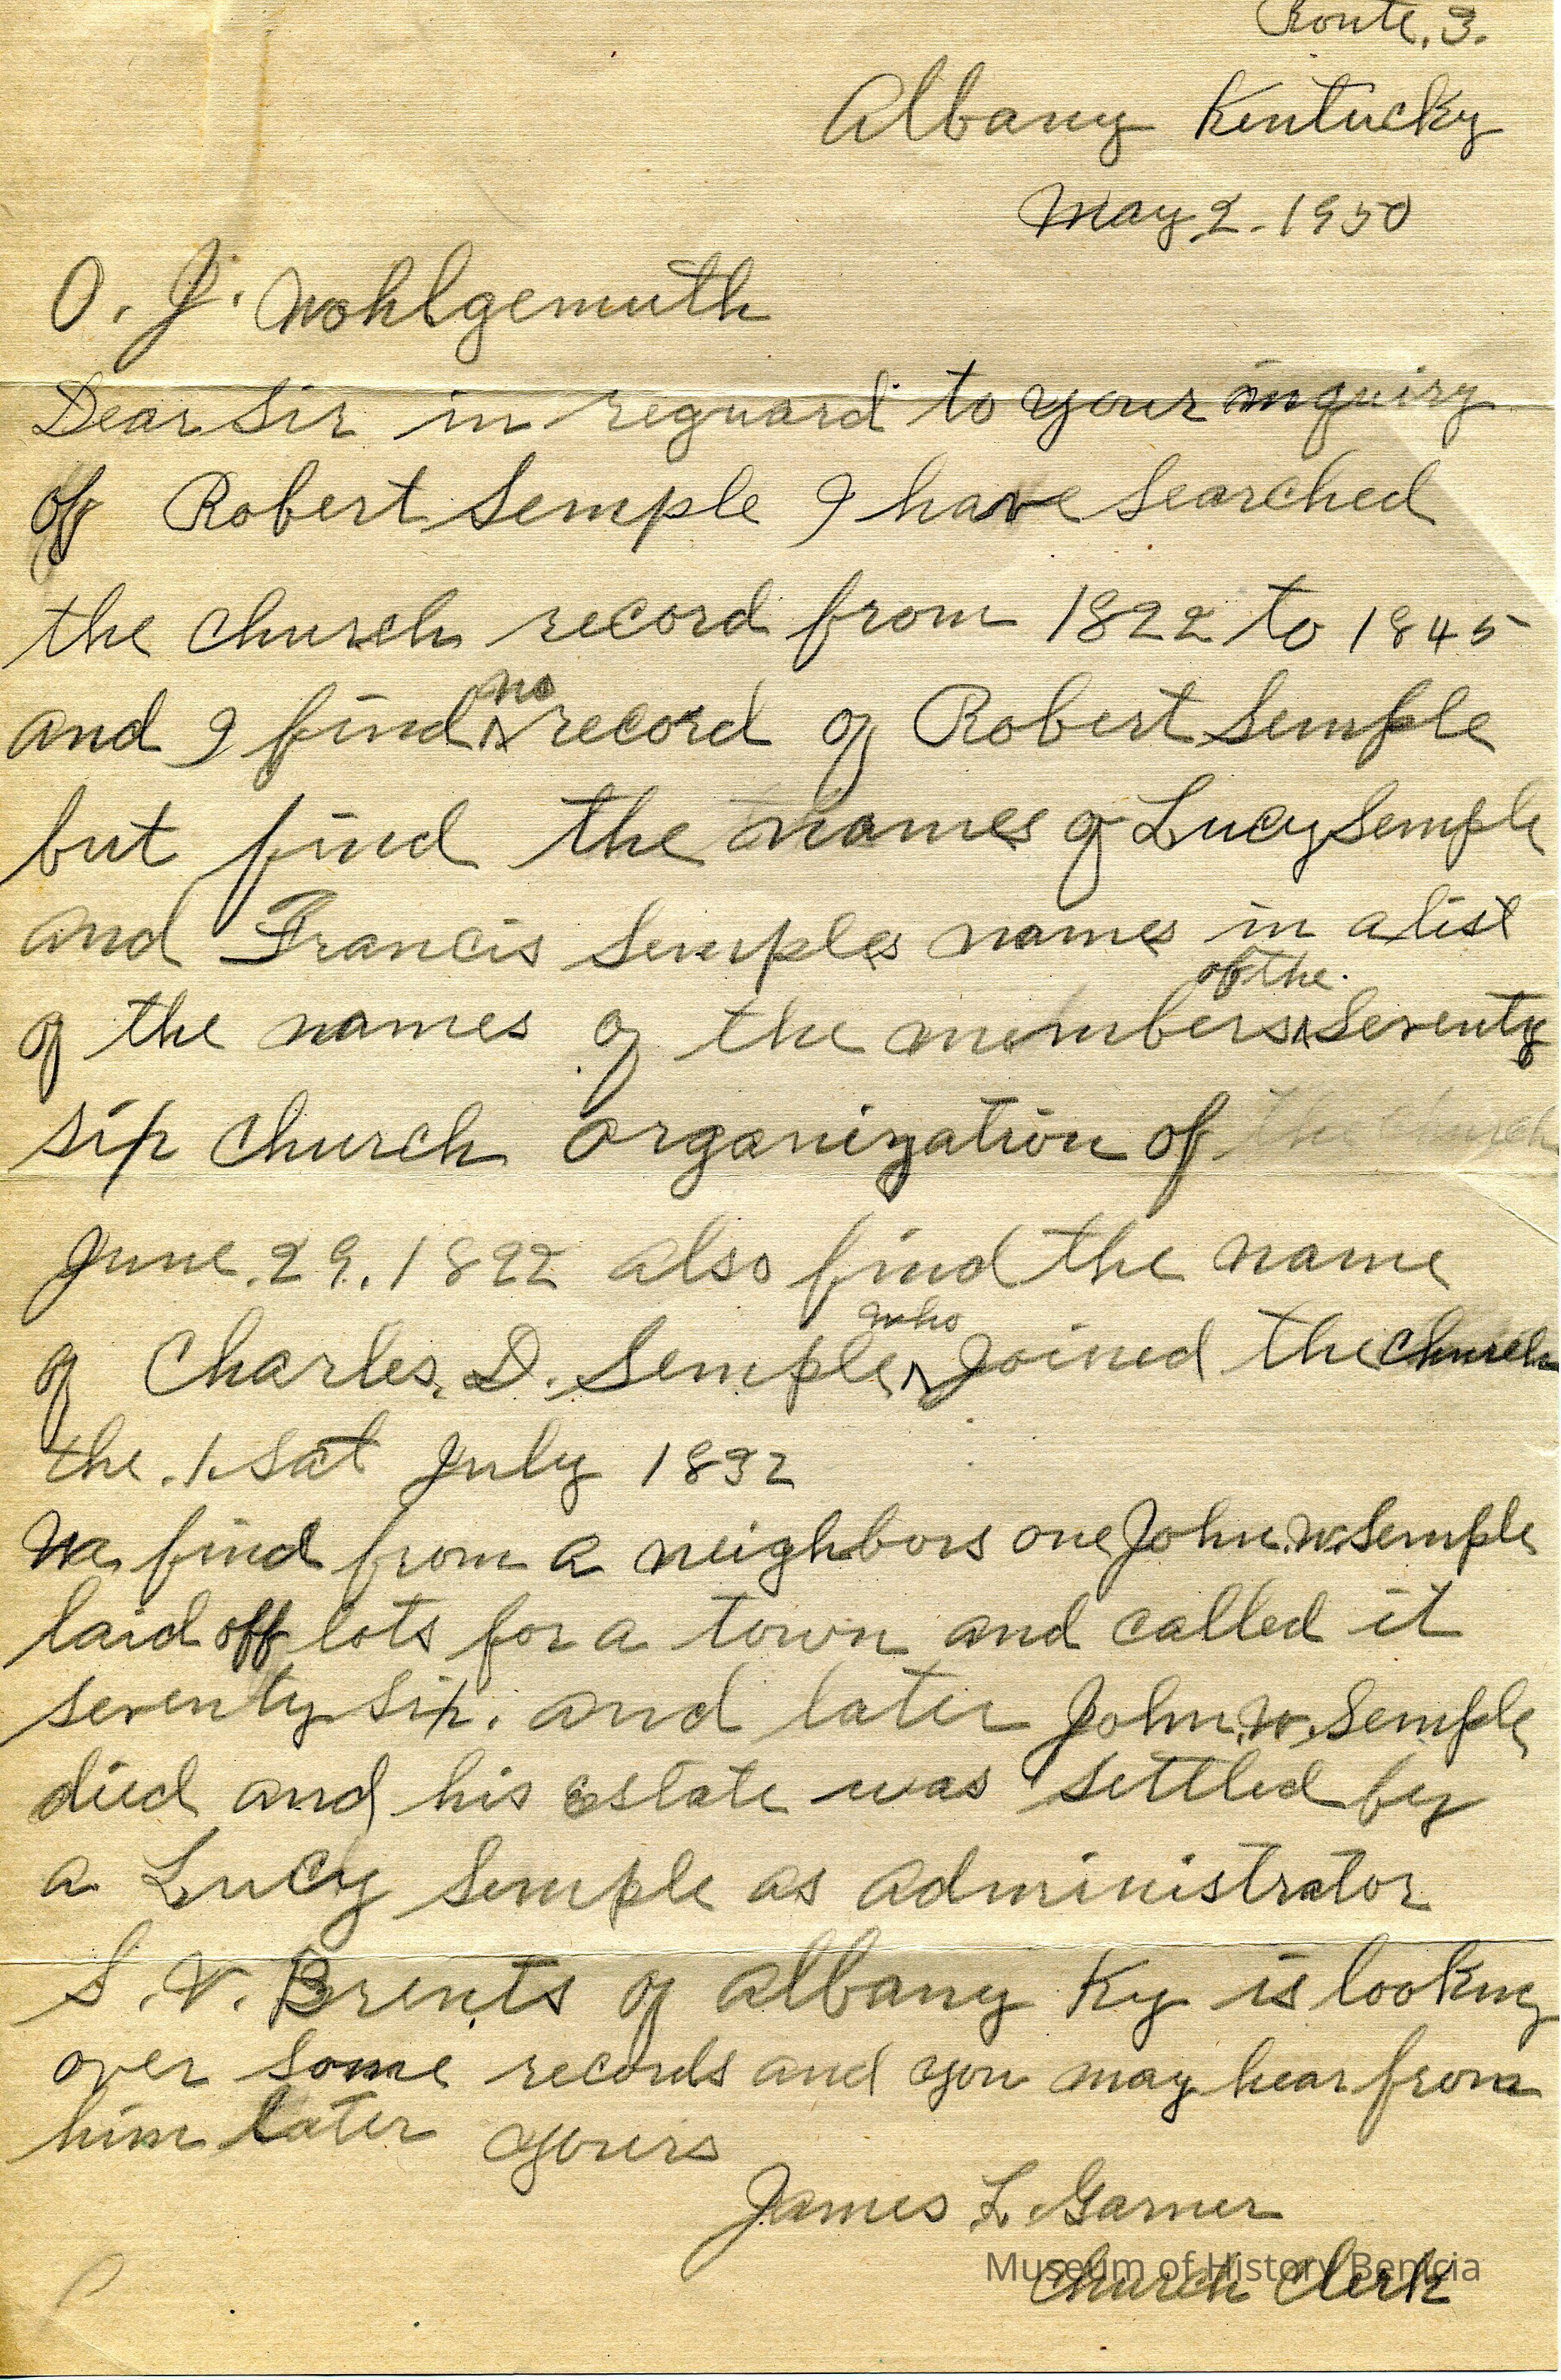 Route. 3.
Albany Kentucky
May 2. 1950
O. J. Wohlgemuth
Dear Sir in reguard to your inquiry
of Robert Semple I have searched
the church record from 1822 to 1845
and I find no record of Robert Semple
but find the names of Lucy Semple
and Francis Semples names in a list
of the names of the members of the Seventy
six church organization of the church
June. 29. 1822 also find the name
of Charles. D. Semple who Joined the church
the. 1. Sat July 1832
We find from a neighbors one John. W. Semple
laid off lots for a town and called it
seventy six. and later John. W. Semple
died and his estate was settled by
a Lucy Semple as administrator
S. V. Brents of Albany Ky is looking
over some records and you may hear from
him later yours
James L. Garner
Church Clerk
Museum of History Benicia